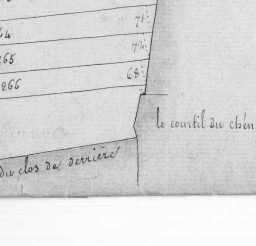 64
265
266 68
le courtil du chên
du clos de derrière